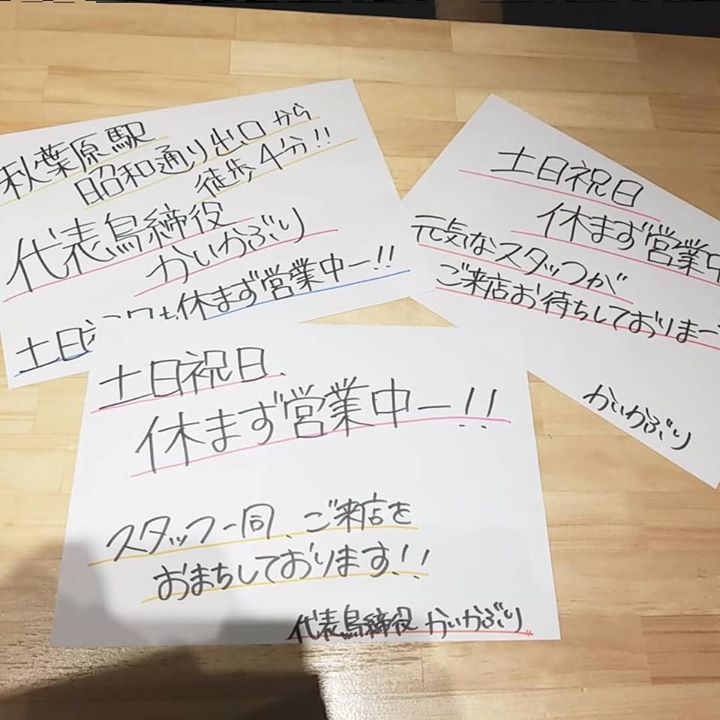 秋葉原駅
昭和通り出口から
徒歩4分!!
代表鳥締役
かいかぶり
土日祝日も休まず営業中ー!!
土日祝日
休まず営業中
元気なスタッフが
ご来店お待ちしておりまー
かいかぶり
土日祝日、
休まず営業中ー!!
スタッフ一同、ご来店を
おまちしております!!
代表鳥締役 かいかぶり